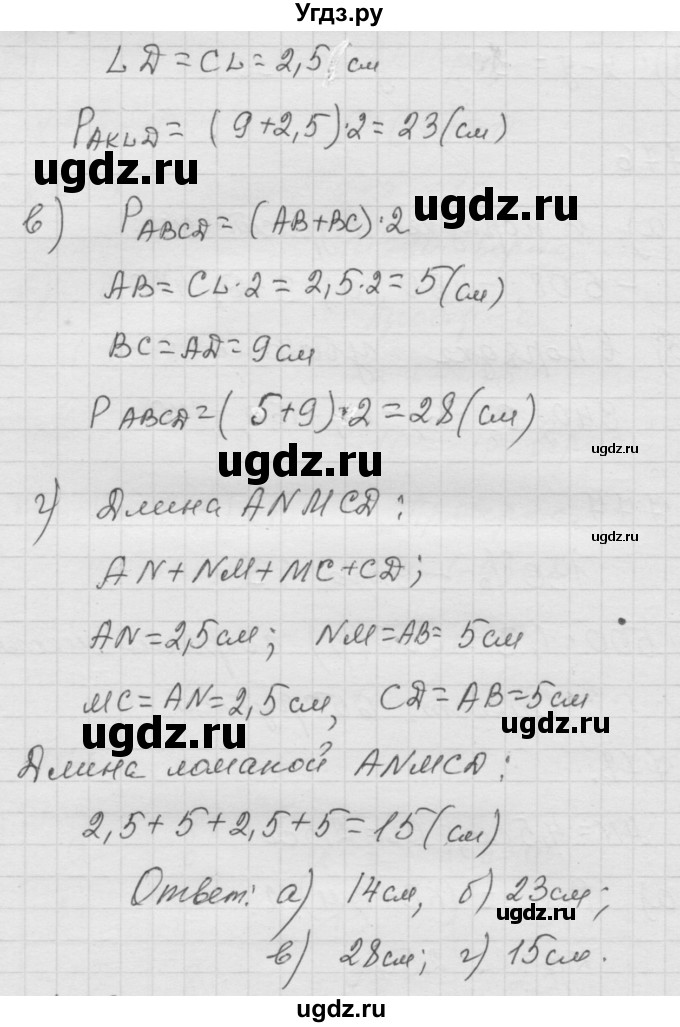 Угдз.ру
LD = CL = 2,5 см
P_AKLD = (9+2,5)·2 = 23(см)
ugdz.ru
ugdz.ru
ugdz.ru
в) P_ABCD = (AB+BC)·2
AB = CL·2 = 2,5·2 = 5(см)
ugdz.ru
BC = AD = 9см
P_ABCD = (5+9)·2 = 28(см)
ugdz.ru
ugdz.ru
г) Длина ANMCD:
ugdz.ru
AN+NM+MC+CD;
AN=2,5см; NM=AB=5см
MC=AN=2,5см, CD=AB=5см
ugdz.ru
ugdz.ru
Длина ломаной ANMCD:
2,5+5+2,5+5=15(см)
Ответ: а) 14см, б) 23см;
ugdz.ru
в) 28см; г) 15см.
ugdz.ru